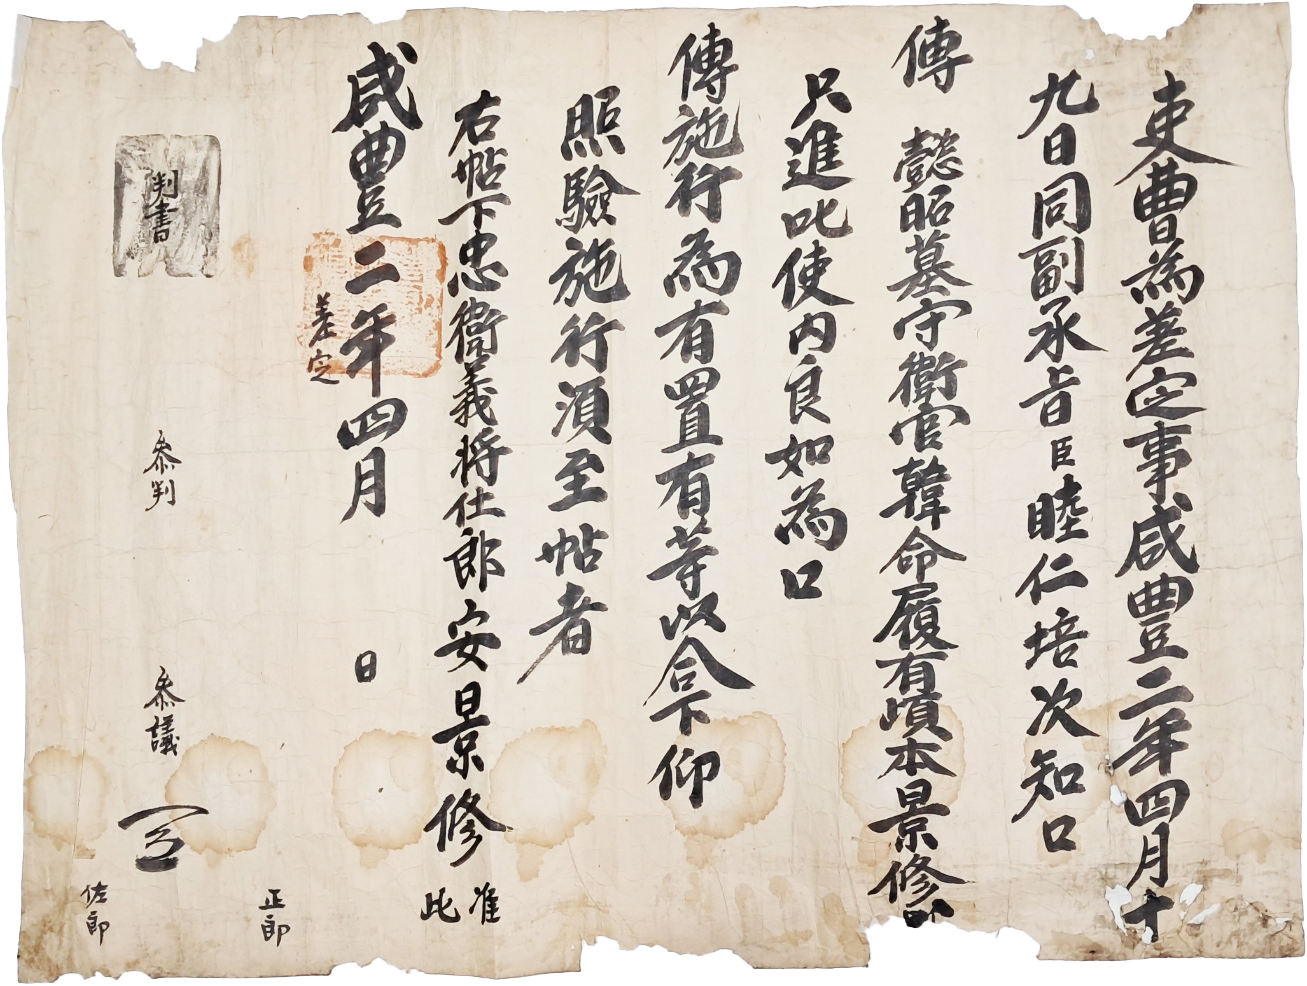 吏曹為差定事咸豊二年四月十
九日同副承旨臣睦仁培次知口
傳 懿昭墓守衛官韓命履有頉本景修
只進叱使內良如為口
傳施行為有置有等以合下仰
照驗施行須至帖者
右帖下忠衛義將仕郎安景修 准此
咸豊二年四月 日
差定
判書 參判 參議
正郎
佐郎